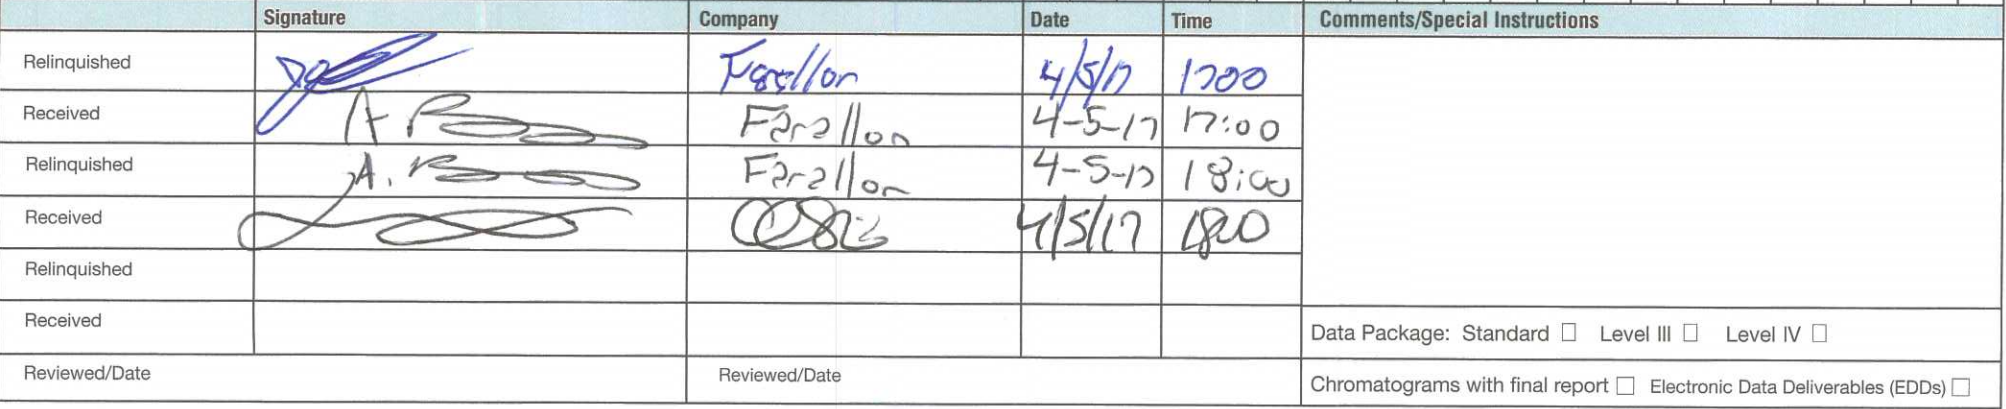 Signature Company Date Time Comments/Special Instructions
Relinquished Farallon 4/5/17 1700
Received Farallon 4-5-17 17:00
Relinquished Farallon 4-5-17 18:00
Received 4/5/17 1800
Relinquished
Received Data Package: Standard ☐ Level III ☐ Level IV ☐
Reviewed/Date Reviewed/Date Chromatograms with final report ☐ Electronic Data Deliverables (EDDs) ☐